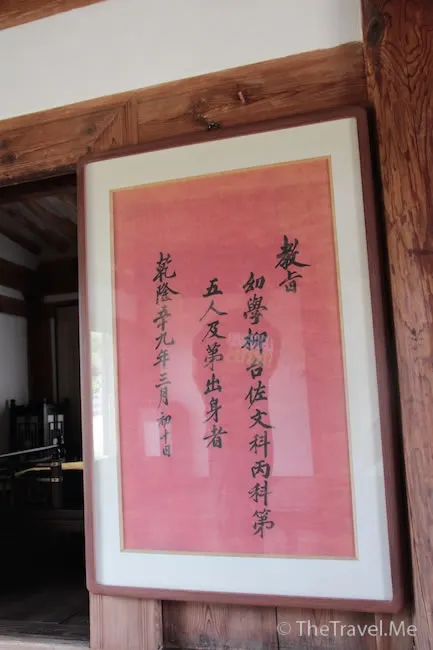 教旨
幼學柳台佐文科丙科第
五人及第出身者
乾隆五十九年三月初十日
© TheTravel.Me